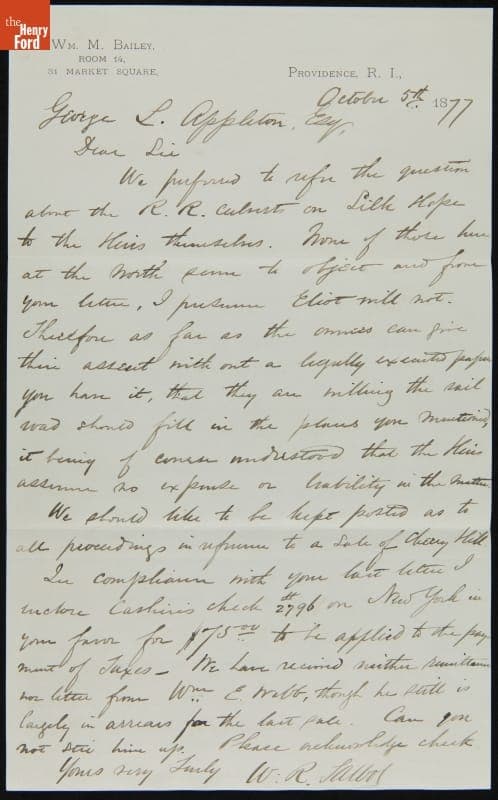 the
Henry
Ford
WM. M. BAILEY,
ROOM 14,
31 MARKET SQUARE,
PROVIDENCE, R. I.,
October 5th 1877
George L. Appleton, Esq,
Dear Sir
We preferred to refer the question
about the R. R. culverts on Silk Hope
to the Heirs themselves. None of those here
at the North seem to object and from
your letter, I presume Eliot will not.
Therefore as far as the owners can give
their assent without a legally executed paper
you have it, that they are willing the rail
road should fill in the places you mentioned
it being of course understood that the Heirs
assume no expense or liability in the matter
We should like to be kept posted as to
all proceedings in reference to a sale of Cherry Hill
In compliance with your last letter I
inclose Cashiers check # 2796 on New York in
your favor for $75.00 to be applied to the pay
ment of Taxes - We have received neither remittance
nor letter from Wm E. Webb, though he still is
largely in arrears for the last sale. Can you
not stir him up. Please acknowledge check
Yours very truly W. R. Talbot